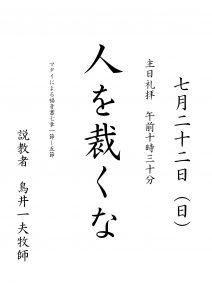 七月二十二日（日）
主日礼拝　午前十時三十分
人を裁くな
マタイによる福音書七章一節～五節
説教者　鳥井一夫牧師